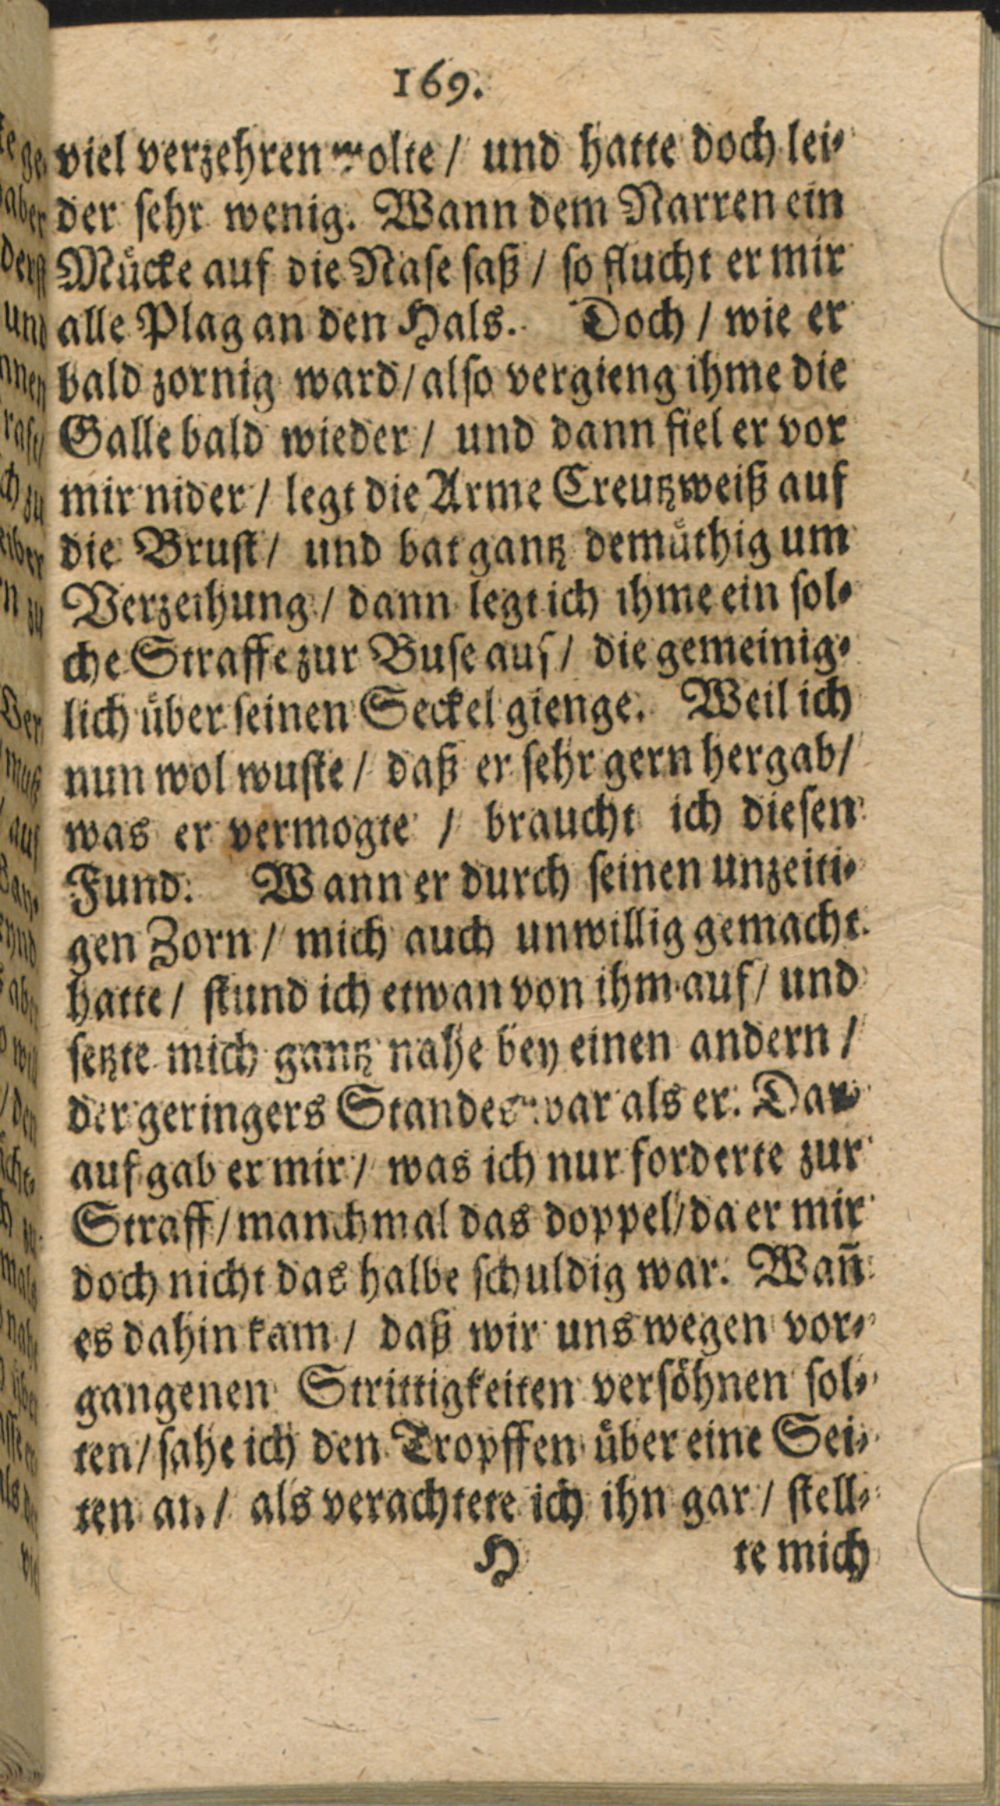 169.
viel verzehren wolte / und hatte doch lei-
der sehr wenig. Wann dem Narren ein
Mücke auf die Nase saß / so flucht er mir
alle Plag an den Hals. Doch / wie er
bald zornig ward / also vergieng ihme die
Galle bald wieder / und dann fiel er vor
mir nider / legt die Arme Creutzweiß auf
die Brust / und bat gantz demüthig um
Verzeihung / dann legt ich ihme ein sol-
che Straffe zur Buse auf / die gemeinig-
lich über seinen Seckel gienge. Weil ich
nun wol wuste / daß er sehr gern hergab /
was er vermogte / braucht ich diesen
Fund. Wann er durch seinen unzeiti-
gen Zorn / mich auch unwillig gemacht
hatte / stund ich etwan von ihm auf / und
setzte mich gantz nahe bey einen andern /
der geringers Standes war als er. Dar-
auf gab er mir / was ich nur forderte zur
Straff / manchmal das doppel / da er mir
doch nicht das halbe schuldig war. Wañ
es dahin kam / daß wir uns wegen vor-
gangenen Strittigkeiten versöhnen sol-
ten / sahe ich den Tropffen über eine Sei-
ten an / als verachtete ich ihn gar / stell-
H te mich